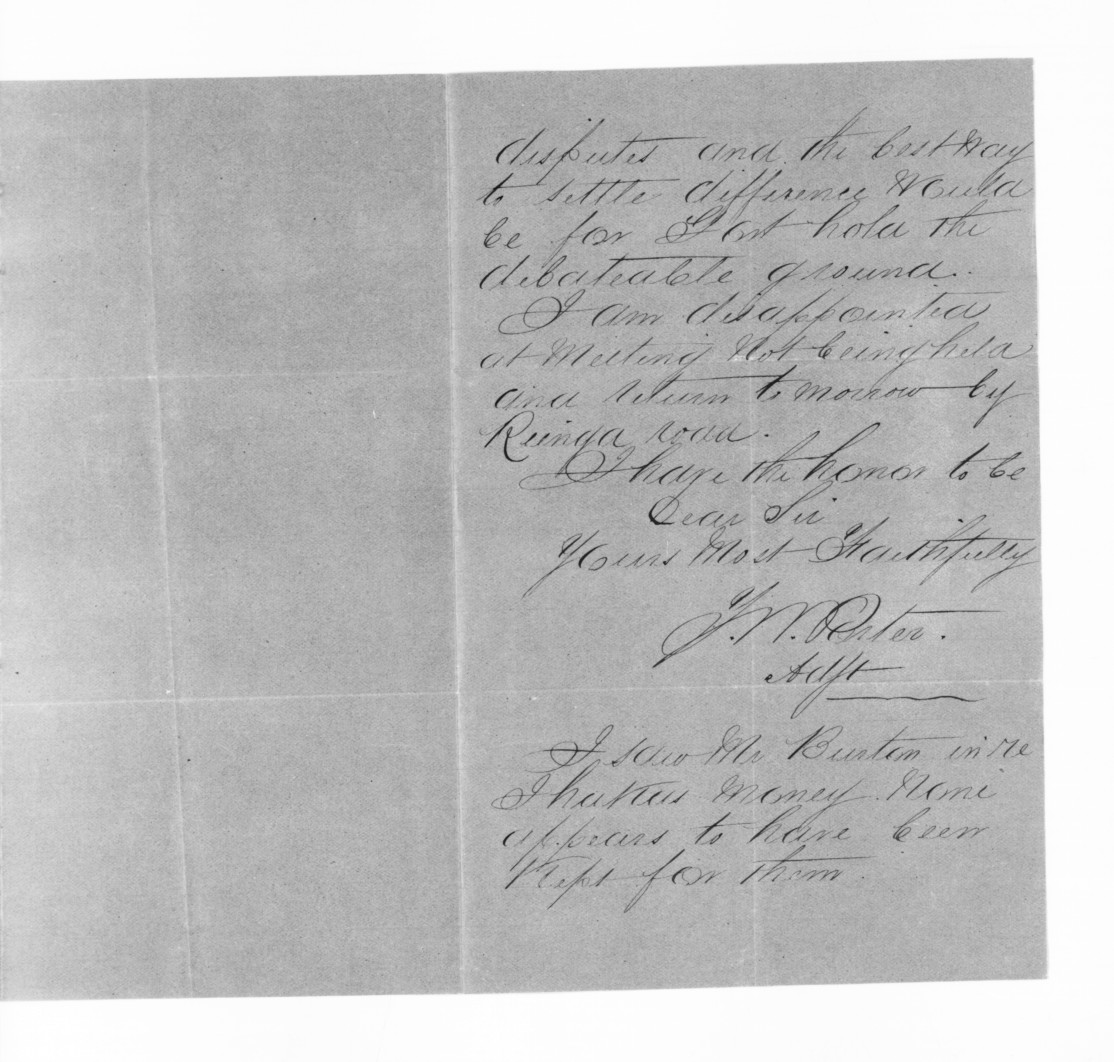 disputes and the best Way
to settle difference Would
be for Govt hold the
debateable ground.
I am disappointed
at Meeting Not being held
and return to morrow by
road.
I have the honor to be
Dear Sir
Yours Most Faithfully
J. W. Porter.
Adjt
I saw Mr Burton in re
Ihakas Money. None
appears to have been
Kept for them.